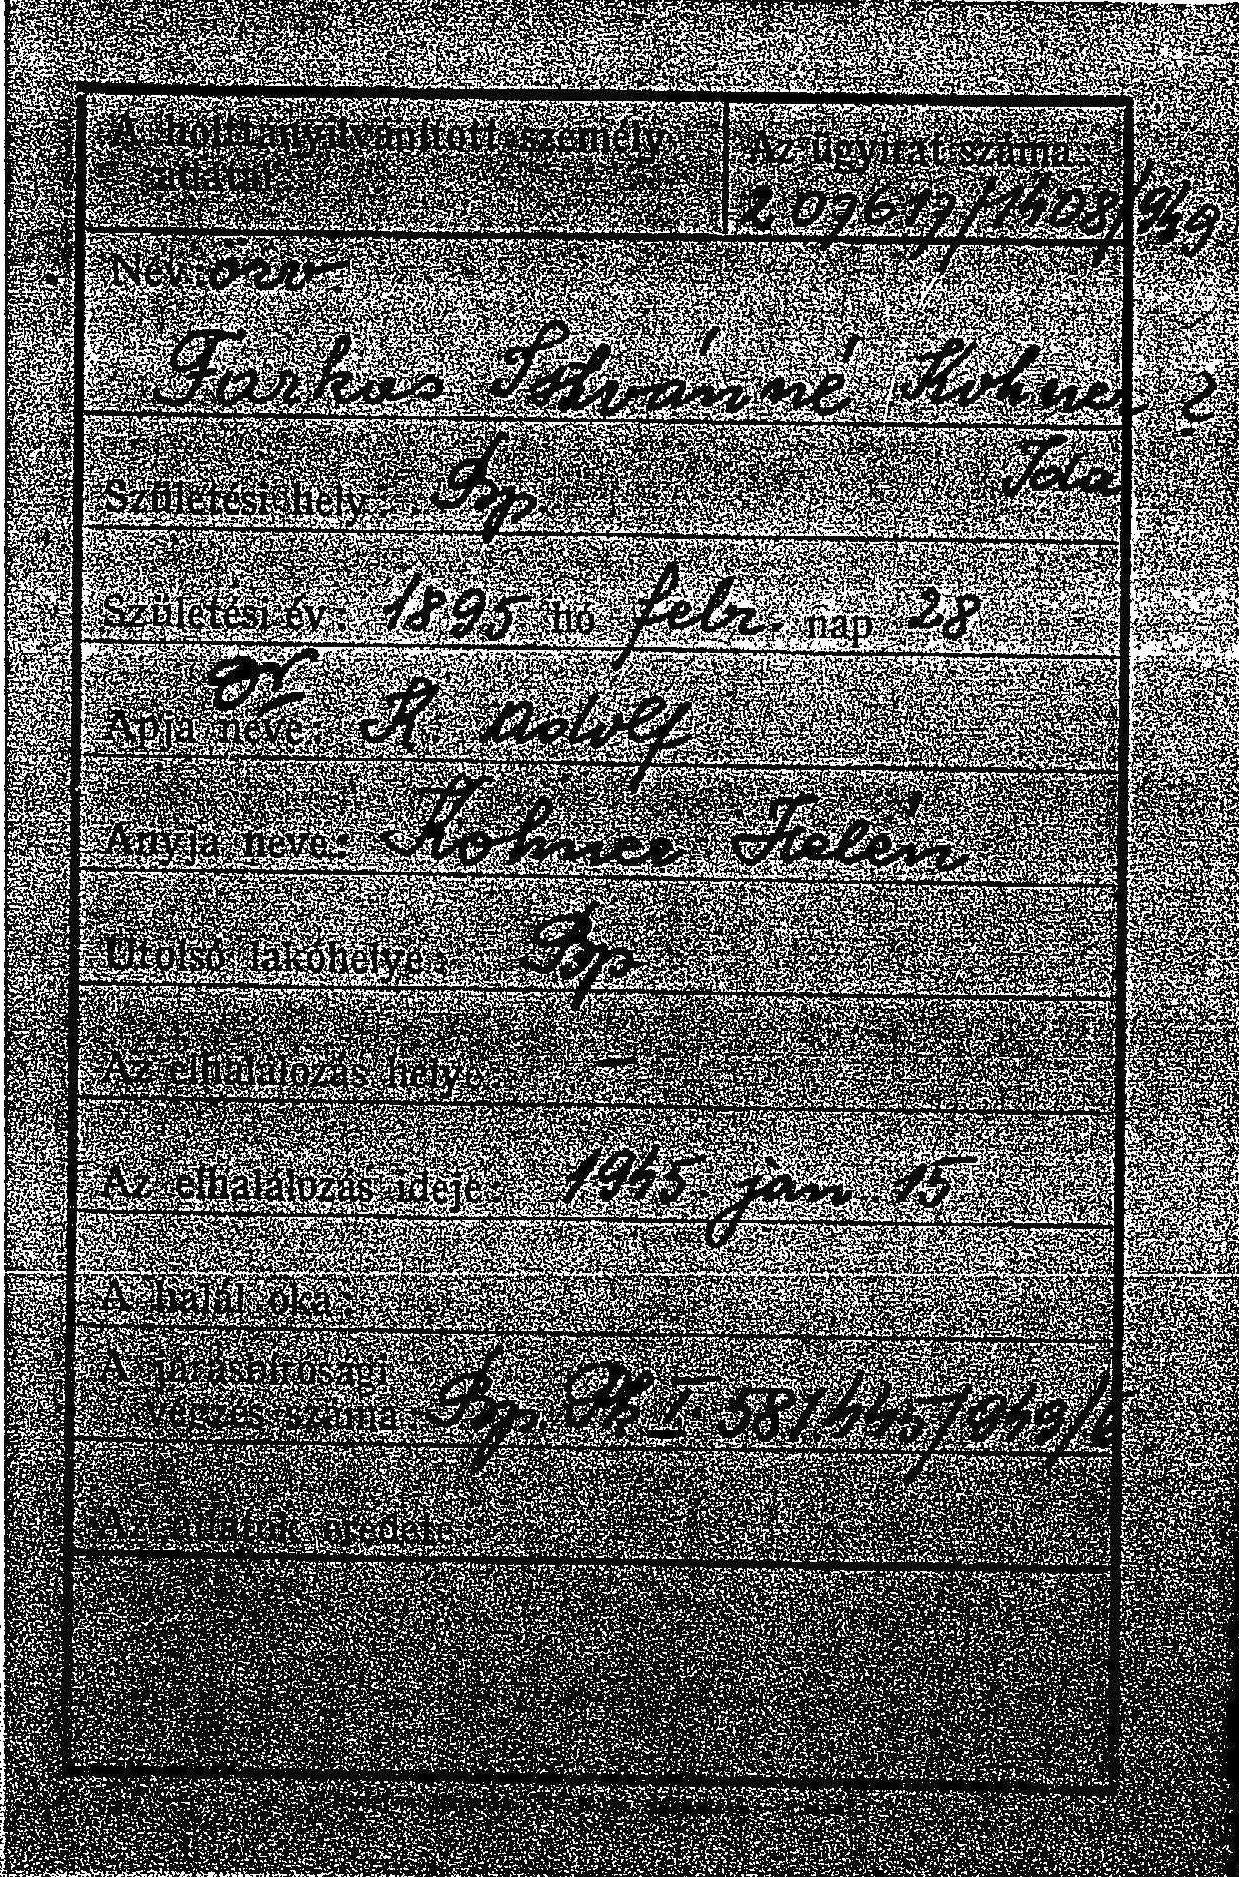 A holttányilvánított személy
adatai:
Az ügyirat száma:
207617/1408/949
Név: özv.
Farkas Istvánné Kohner ?
Ida
Születési hely: Bp.
Születési év: 1895 hó febr. nap 28
dr
Apja neve: K. Adolf
Anyja neve: Kohner Helén
Utolsó lakóhelye: Bp
Az elhalálozás helye: –
Az elhalálozás ideje: 1945. jan. 15
A halál oka:
A járásbírósági
végzés száma Bp. Pk I. 581.445/949/
Az adatok eredete